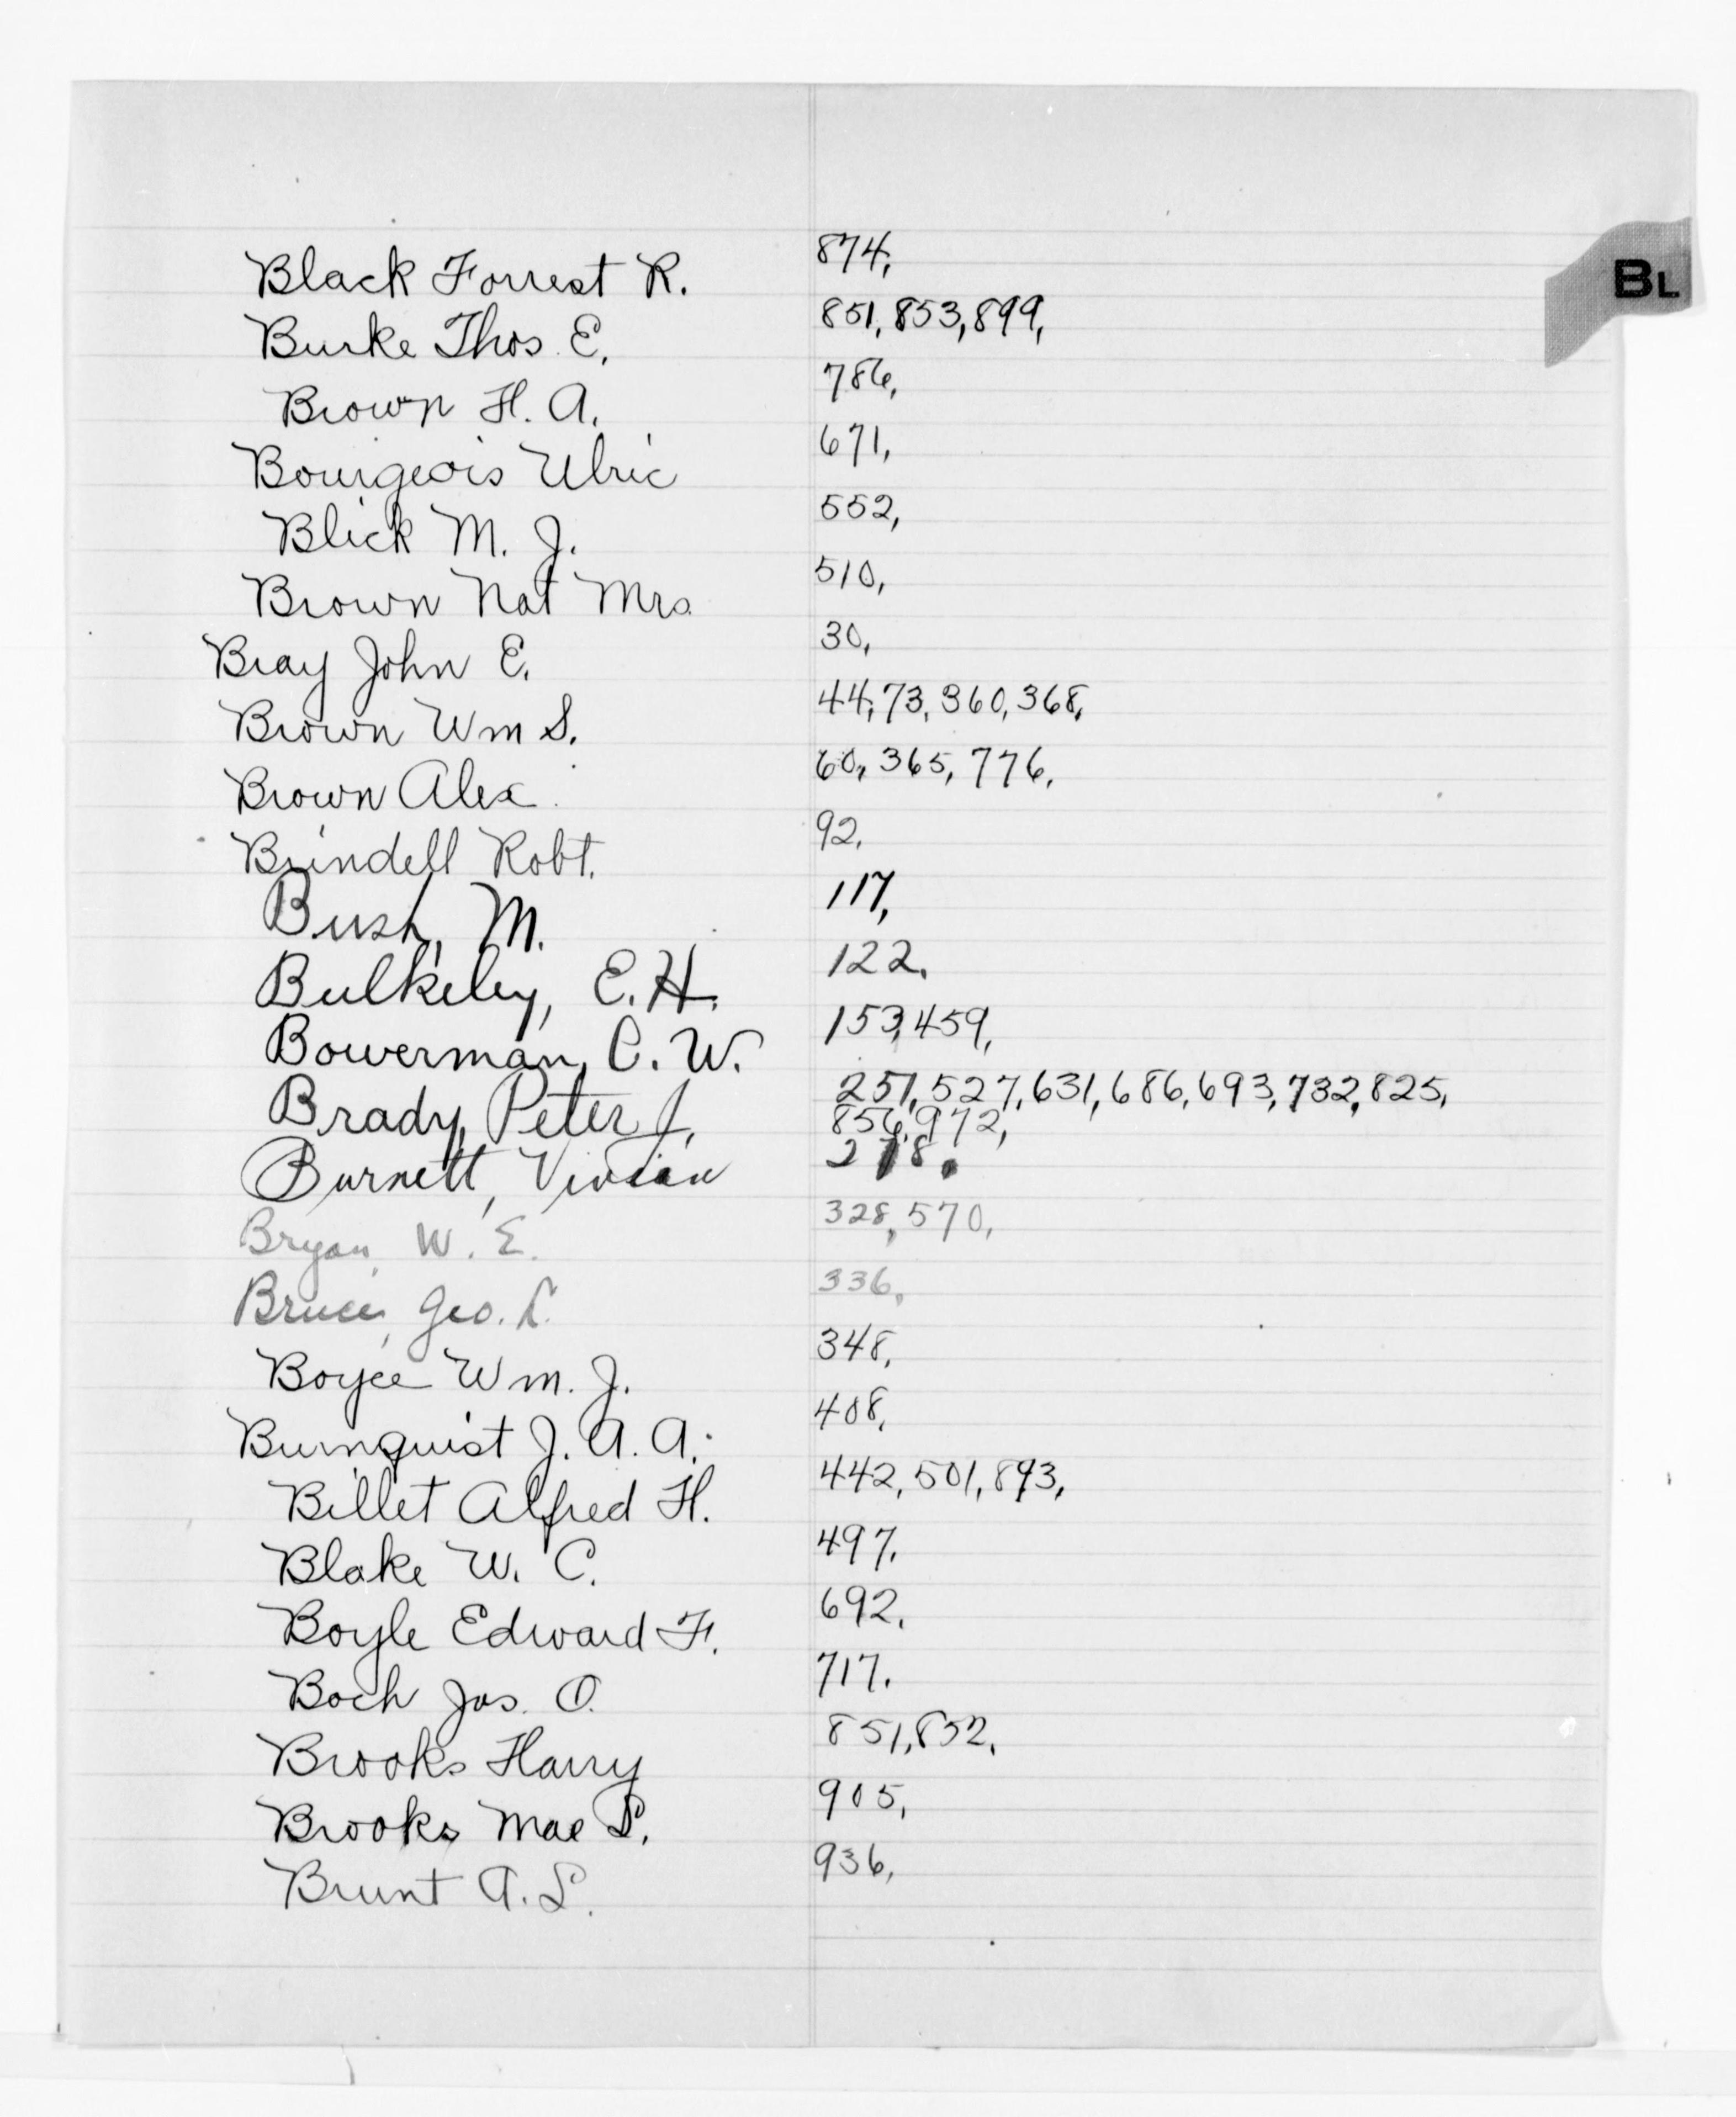 BL
Black Forrest R. 874,
Burke Thos. E. 851, 853, 899,
Brown H. A. 786,
Bourgeois Ulric 671,
Blick M. J. 552,
Brown Nat Mrs. 510,
Bray John E. 30,
Brown Wm S. 44, 73, 360, 368,
Brown Alex. 60, 365, 776,
Brindell Robt. 92,
Bush, M. 117,
Bulkeley, E. H. 122,
Bowerman, C. W. 153, 459,
Brady, Peter J. 251, 527, 631, 686, 693, 732, 825,
856, 972,
Burnett, Vivian 278,
Bryan, W. E. 328, 570,
Bruce, Geo. L. 336,
Boyce Wm. J. 348,
Burnquist J. A. A. 408,
Billet Alfred H. 442, 501, 893,
Blake W. C. 497,
Boyle Edward F. 692,
Boch Jos. O. 717,
Brooks Harry 851, 852,
Brooks Mae S. 905,
Brunt A. L. 936,